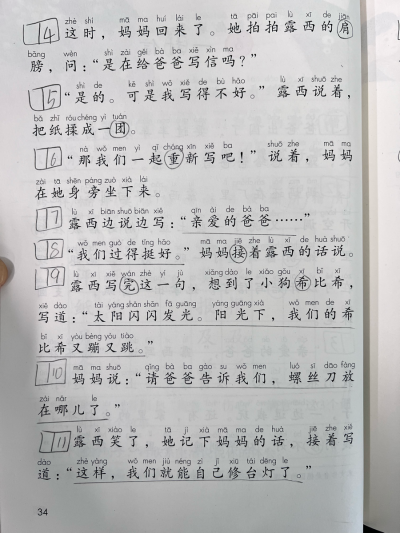 zhè shí mā ma huí lái le tā pāi pai lù xī de jiān
4 这时，妈妈回来了。她拍拍露西的肩
bǎng wèn shì zài gěi bà ba xiě xìn ma
膀，问：“是在给爸爸写信吗？”
shì de kě shì wǒ xiě de bù hǎo lù xī shuō zhe
5 “是的。可是我写得不好。”露西说着，
bǎ zhǐ róu chéng yì tuán
把纸揉成一团。
nà wǒ men yì qǐ chóng xīn xiě ba shuō zhe mā ma
6 “那我们一起重新写吧！”说着，妈妈
zài tā shēn páng zuò xià lái
在她身旁坐下来。
lù xī biān shuō biān xiě qīn ài de bà ba
7 露西边说边写：“亲爱的爸爸……”
wǒ men guò de tǐng hǎo mā ma jiē zhe lù xī de huà shuō
8 “我们过得挺好。”妈妈接着露西的话说。
lù xī xiě wán zhè yí jù xiǎng dào le xiǎo gǒu xī bǐ xī
9 露西写完这一句，想到了小狗希比希，
xiě dào tài yáng shǎn shǎn fā guāng yáng guāng xià wǒ men de xī
写道：“太阳闪闪发光。阳光下，我们的希
bǐ xī yòu bèng yòu tiào
比希又蹦又跳。”
mā ma shuō qǐng bà ba gào su wǒ men luó sī dāo fàng
10 妈妈说：“请爸爸告诉我们，螺丝刀放
zài nǎr le
在哪儿了。”
lù xī xiào le tā jì xià mā ma de huà jiē zhe xiě
11 露西笑了，她记下妈妈的话，接着写
dào zhè yàng wǒ men jiù néng zì jǐ xiū tái dēng le
道：“这样，我们就能自己修台灯了。”
34